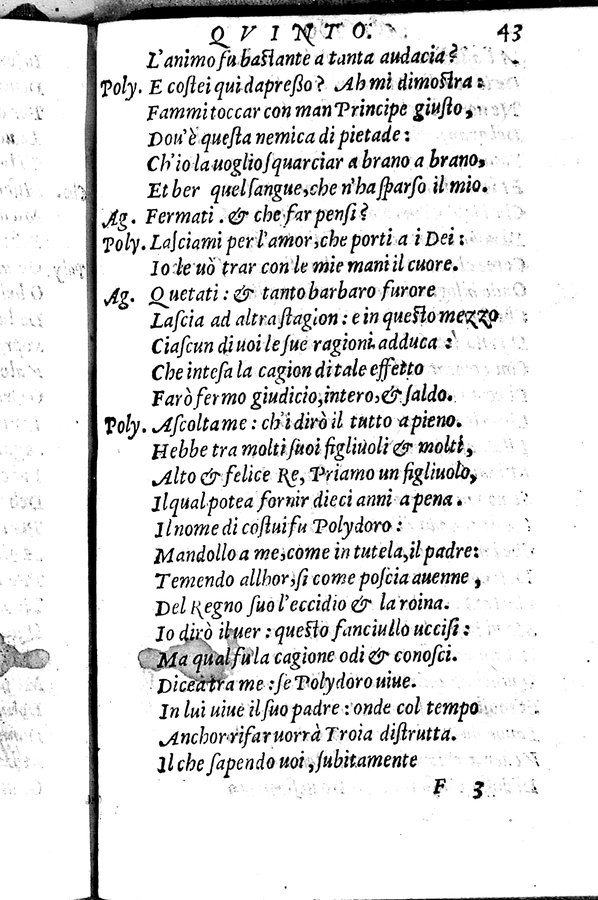 QVINTO. 43
L'animo fu bastante a tanta audacia?
Poly. E costei qui dapresso? Ah mi dimostra:
Fammi toccar con man Principe giusto,
Dou'è questa nemica di pietade:
Ch'io la uoglio squarciar a brano a brano,
Et ber quel sangue, che n'ha sparso il mio.
Ag. Fermati. & che far pensi?
Poly. Lasciami per l'amor, che porti a i Dei:
Io le uò trar con le mie mani il cuore.
Ag. Quetati: & tanto barbaro furore
Lascia ad altra stagion: e in questo mezzo
Ciascun di uoi le sue ragioni adduca:
Che intesa la cagion di tale effetto
Farò fermo giudicio, intero, & saldo.
Poly. Ascolta me: ch'i dirò il tutto a pieno.
Hebbe tra molti suoi figliuoli & molti,
Alto & felice Re, Priamo un figliuolo,
Il qual potea fornir dieci anni a pena.
Il nome di costui fu Polydoro:
Mandollo a me, come in tutela, il padre:
Temendo allhor, si come poscia auenne,
Del Regno suo l'eccidio & la roina.
Io dirò il uer: questo fanciullo uccisi:
Ma qual fu la cagione odi & conosci.
Dicea tra me: se Polydoro uiue.
In lui uiue il suo padre: onde col tempo
Anchor rifar uorrà Troia distrutta.
Il che sapendo uoi, subitamente
F 3